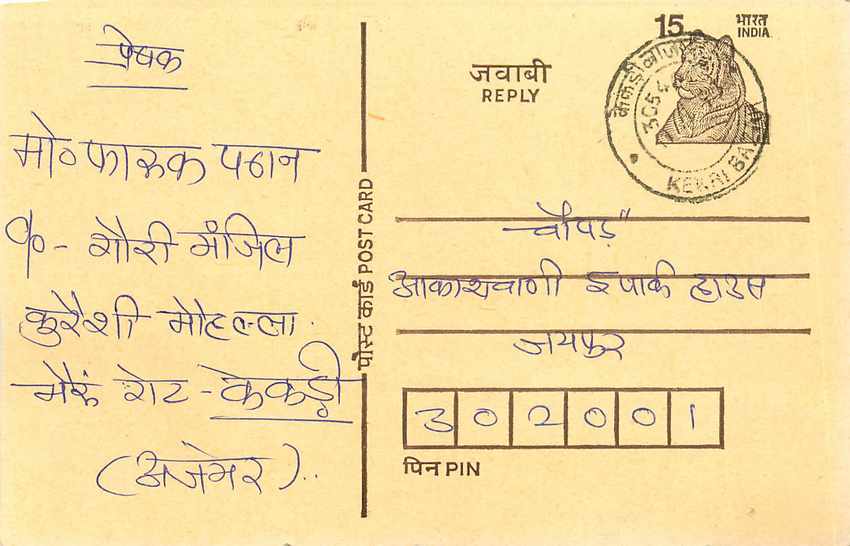 प्रेषक
मो० फारूक पठान
℅- गौरी मंजिल
कुरैशी मोहल्ला.
भैरूं गेट - केकड़ी
(अजमेर)..
पोस्ट कार्ड POST CARD
जवाबी
REPLY
15
भारत
INDIA
KEKRI
"चौपड़"
आकाशवाणी 5 पार्क हाउस
जयपुर
302001
पिन PIN